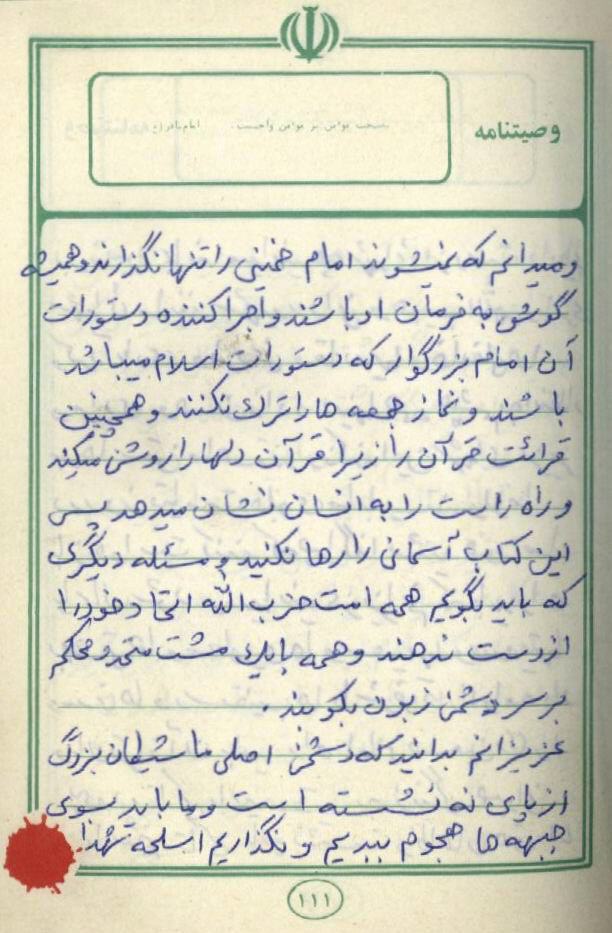 وصیتنامه
نصیحت مؤمن بر مؤمن واجبست. امام باقر (ع)
ومیدانم که نمیشوند امام خمینی را تنها نگذارند و همیشه
گوش به فرمان او باشند و اجرا کننده دستورات
آن امام بزرگوار که دستورات اسلام میباشد
باشند و نماز جمعه ها را ترک نکنند و همچنین
قرائت قرآن را زیرا قرآن دلها را روشن میکند
و راه راست را به انسان نشان میدهد پس
این کتاب آسمانی را رها نکنید و مسئله دیگری
که باید بگویم همه امت حزب الله اتحاد خود را
از دست ندهند و همه با یک مشت متحد و محکم
بر سر دشمن زبون بکوبند .
عزیزانم بدانید که دشمن اصلی ما شیطان بزرگ
از پای نه نشسته است و ما باید بسوی
جبهه ها هجوم ببریم و نگذاریم اسلحه شهدا
۱۱۱